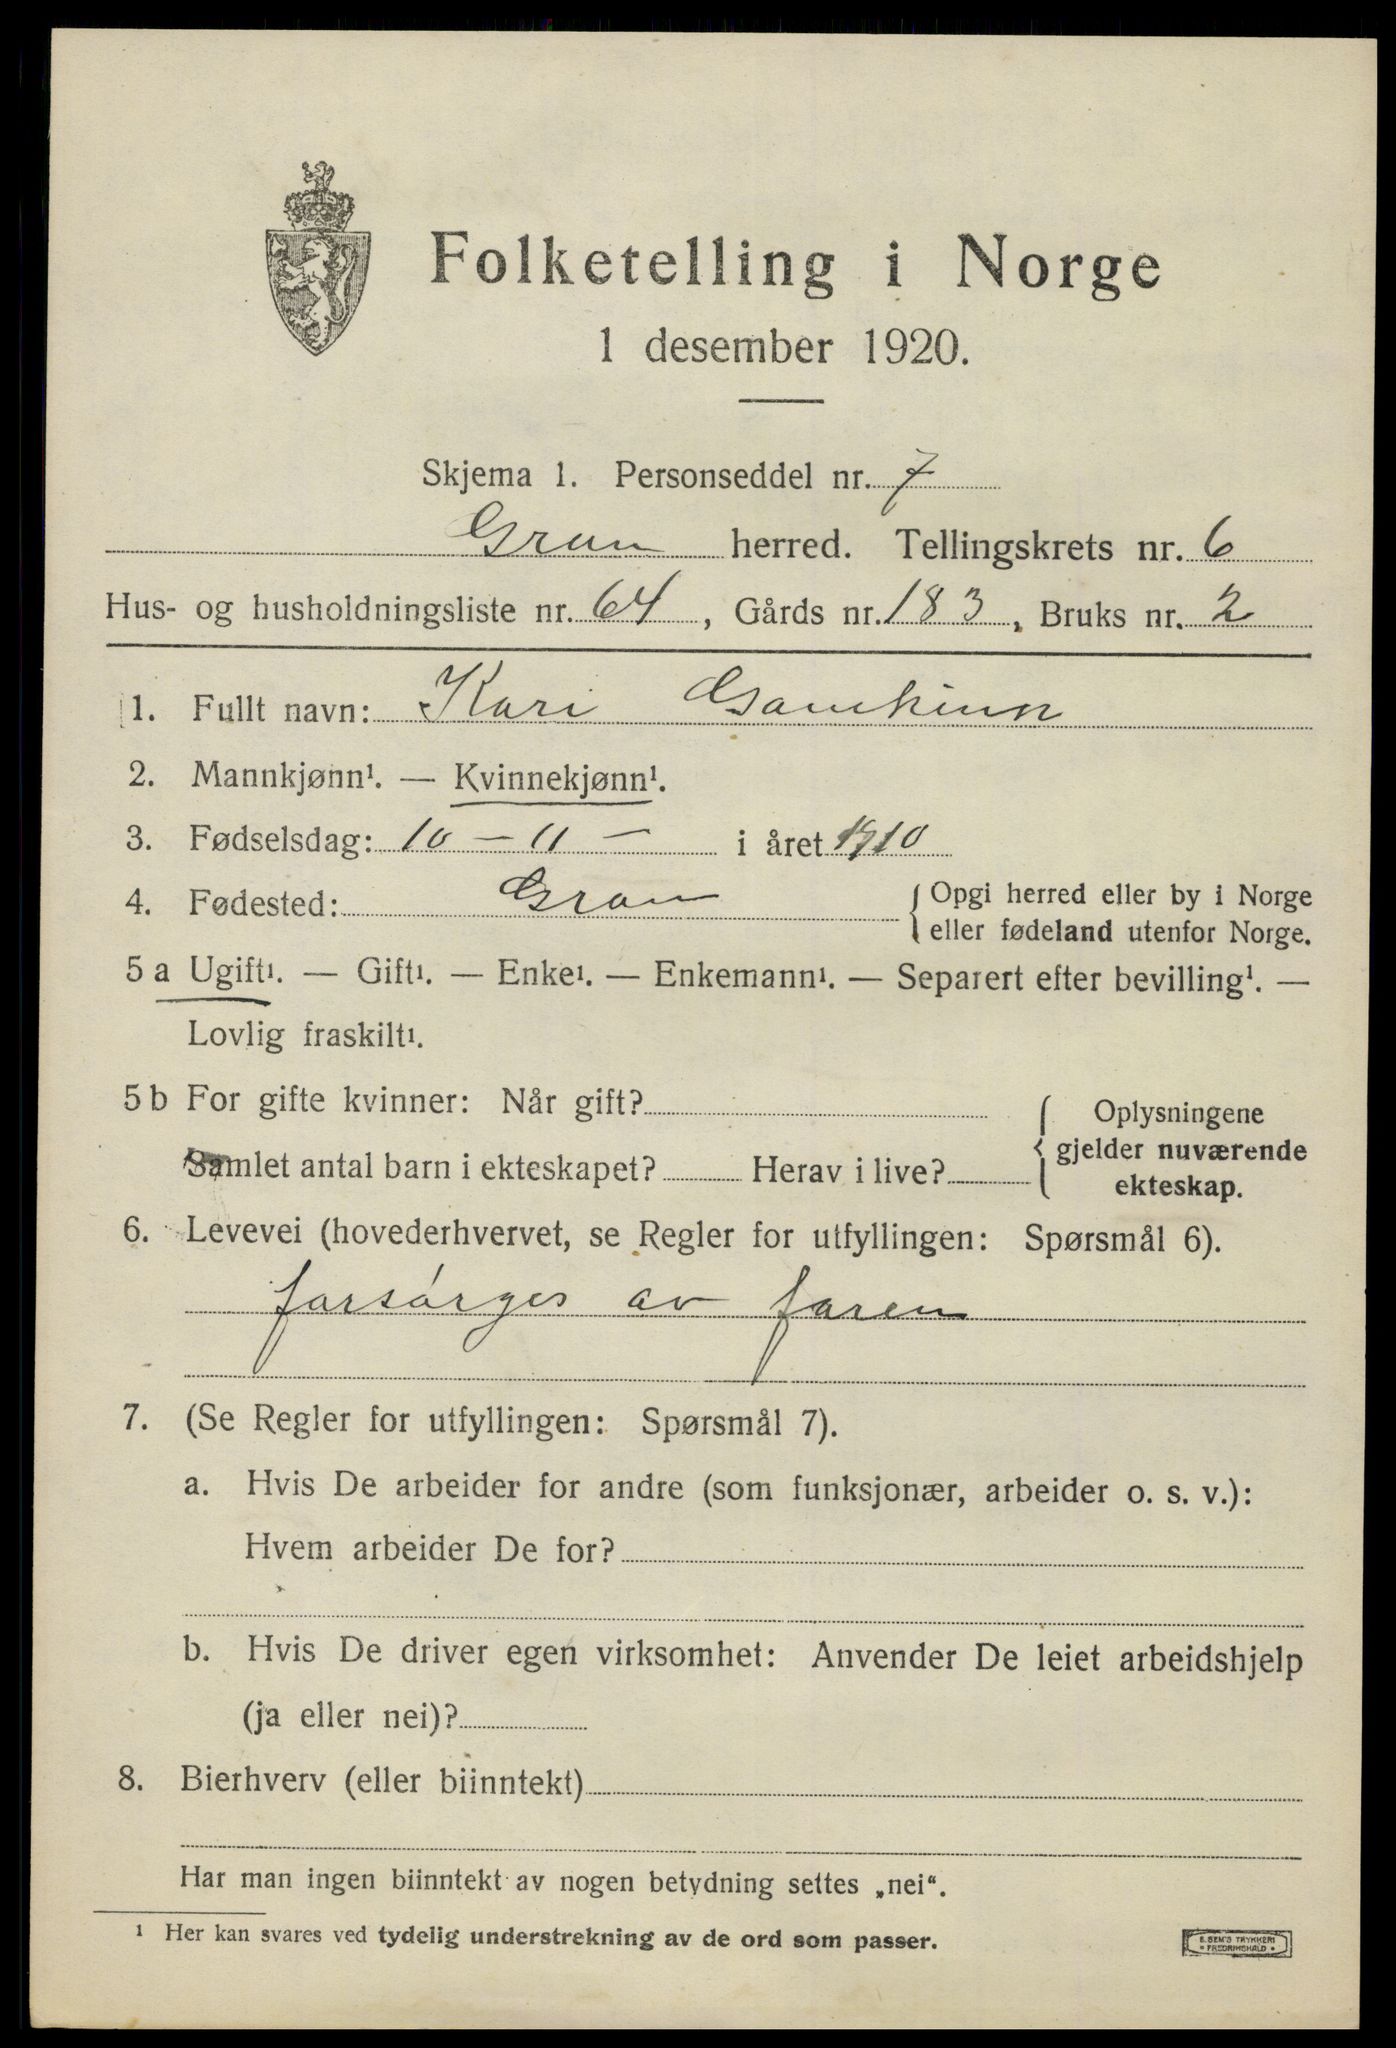 Folketelling i Norge
1 desember 1920.
Skjema 1. Personseddel nr. 7
Gran herred. Tellingskrets nr. 6
Hus- og husholdningsliste nr. 64, Gårds nr. 183, Bruks nr. 2
1. Fullt navn: Kari Gamkinn
2. Mannkjønn¹. — Kvinnekjønn¹.
3. Fødselsdag: 10 - 11 - i året 1910
4. Fødested: Gran { Opgi herred eller by i Norge
eller fødeland utenfor Norge.
5 a Ugift¹. — Gift¹. — Enke¹. — Enkemann¹. — Separert efter bevilling¹. —
Lovlig fraskilt¹.
5 b For gifte kvinner: Når gift?
Samlet antal barn i ekteskapet? Herav i live?
{ Oplysningene
gjelder nuværende
ekteskap.
6. Levevei (hovederhvervet, se Regler for utfyllingen: Spørsmål 6).
forsørges av faren
7. (Se Regler for utfyllingen: Spørsmål 7).
a. Hvis De arbeider for andre (som funksjonær, arbeider o. s. v.):
Hvem arbeider De for?
b. Hvis De driver egen virksomhet: Anvender De leiet arbeidshjelp
(ja eller nei)?
8. Bierhverv (eller biinntekt)
Har man ingen biinntekt av nogen betydning settes „nei“.
¹ Her kan svares ved tydelig understrekning av de ord som passer.
E. SEM'S TRYKKERI
FREDRIKSHALD